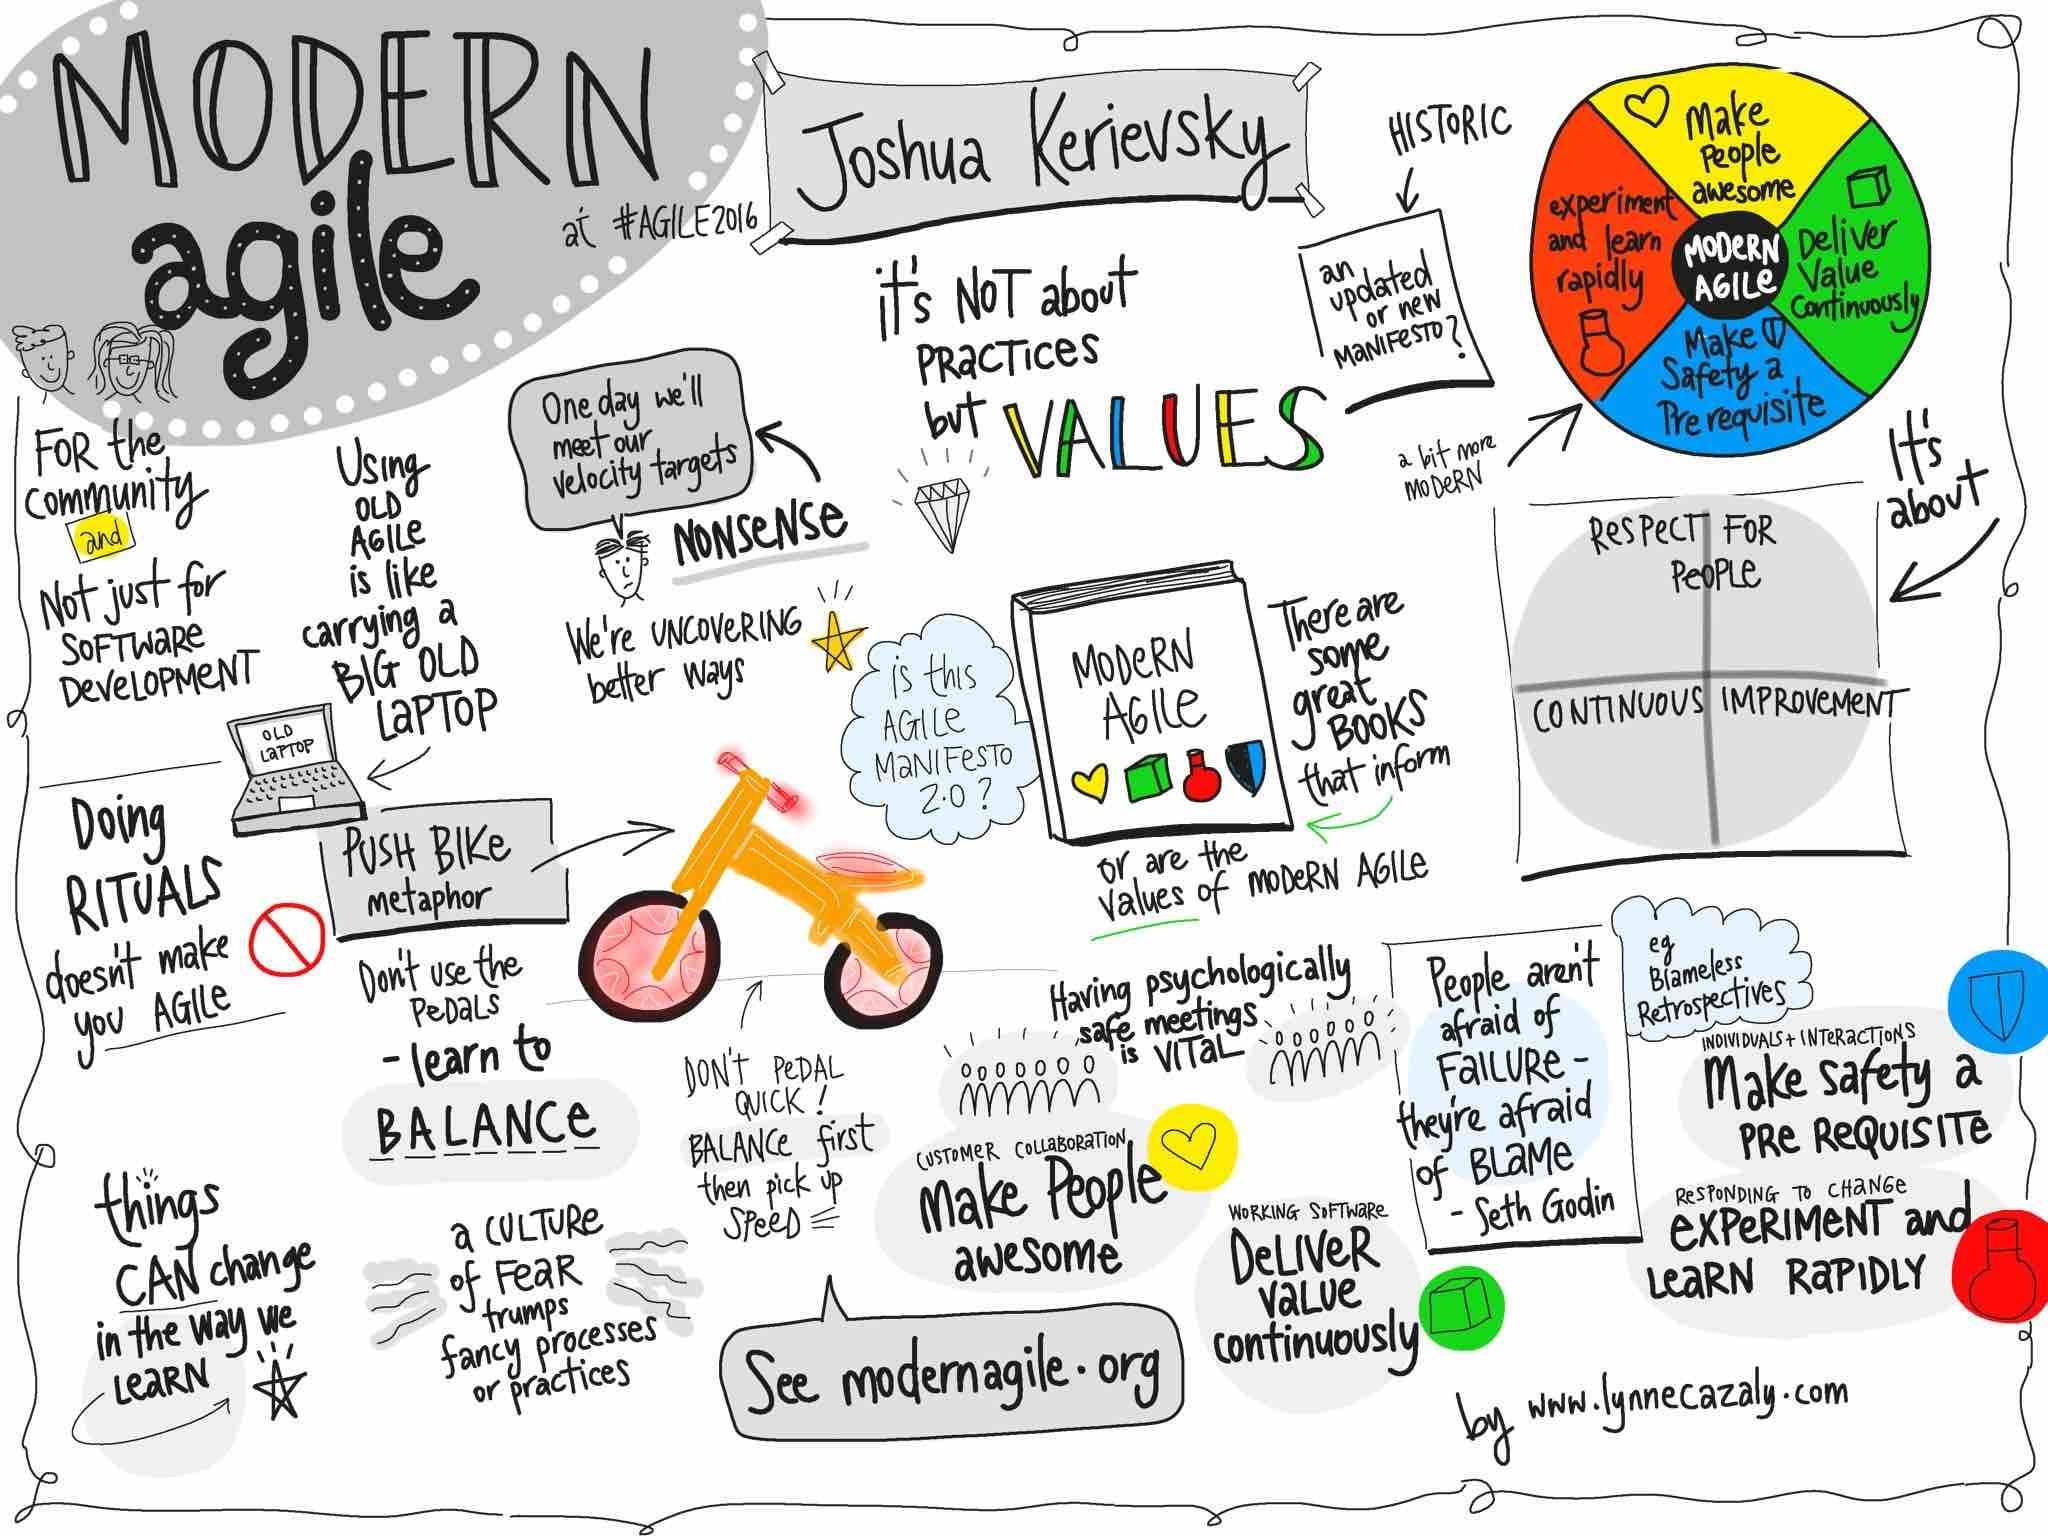 MODERN
agile
at #AGILE2016
Joshua Kerievsky
HISTORIC
an
updated
or new
MANIFESTO?
it's NOT about
PRACTICES
but VALUES
Make
People
awesome
experiment
and learn
rapidly
MODERN
AGILE
Deliver
Value
Continuously
Make
Safety a
Pre requisite
a bit more
MODERN
It's
about
RESPECT FOR
PEOPLE
CONTINUOUS IMPROVEMENT
FOR the
community
and
Not just for
SOFTWARE
DEVELOPMENT
Using
OLD
AGILE
is like
carrying a
BIG OLD
LAPTOP
OLD
LAPTOP
One day we'll
meet our
velocity targets
NONSENSE
We're UNCOVERING
better ways
is this
AGILE
MANIFESTO
2.0?
MODERN
AGILE
There are
some
great
BOOKS
that inform
or are the
values of MODERN AGILE
Doing
RITUALS
doesn't make
you AGILE
PUSH BIKE
metaphor
Don't use the
PEDALS
- learn to
BALANCE
DON'T PEDAL
QUICK!
BALANCE first
then pick up
SPEED
Having psychologically
safe meetings
is VITAL
People aren't
afraid of
FAILURE -
they're afraid
of BLAME
- Seth Godin
eg
Blameless
Retrospectives
INDIVIDUALS + INTERACTIONS
Make safety a
PRE REQUISITE
CUSTOMER COLLABORATION
Make People
awesome
WORKING SOFTWARE
DELIVER
VALUE
continuously
RESPONDING TO CHANGE
EXPERIMENT and
LEARN RAPIDLY
things
CAN change
in the way we
LEARN
a CULTURE
of FEAR
trumps
fancy processes
or practices
See modernagile.org
by www.lynnecazaly.com